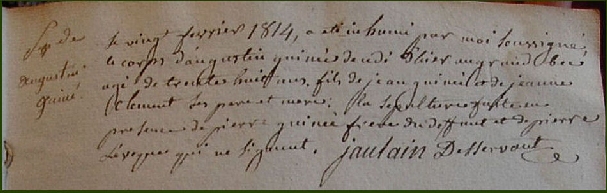 Sre de
augustin
quiné
le vingt fevrier 1814, a été inhumé par moi soussigné,
le corps d'augustin quinée decedé hier au grand
agé de trente huit ans, fils de jean quinée et de jeanne
Clement ses pere et mere. la sepulture faite en
presence de pierre quinée frere du deffunt et de pierre
Leveque qui ne signent. jaulain Desservant